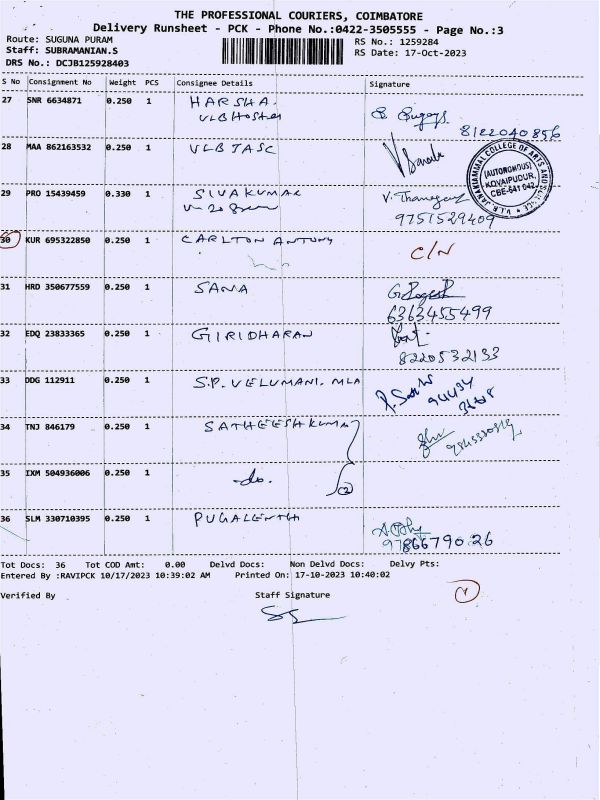 THE PROFESSIONAL COURIERS, COIMBATORE
Delivery Runsheet - PCK - Phone No.:0422-3505555 - Page No.:3
Route: SUGUNA PURAM
RS No.: 1259284
Staff: SUBRAMANIAN.S
RS Date: 17-Oct-2023
DRS No.: DCJB125928403
S No Consignment No Weight PCS Consignee Details Signature
27 SNR 6634871 0.250 1 HARSHA.
VLB Hostel
8122040856
28 MAA 862163532 0.250 1 VLB JASC
V.L.B. JANAKIAMMAL COLLEGE OF ARTS AND SCIENCE
(AUTONOMOUS)
KOVAIPUDUR,
CBE-641 042
29 PRO 15439459 0.330 1 SIVAKUMAR V. Thangaraj
9751529409
30 KUR 695322850 0.250 1 CARLTON ANTONY C/N
31 HRD 350667559 0.250 1 SANA
6363455499
32 EDQ 23833365 0.250 1 GIRIDHARAN
8220532133
33 DDG 112911 0.250 1 S.P. VELUMANI. MLA
94434
34 TNJ 846179 0.250 1 SATHEESH KUMAR
35 IXM 504936006 0.250 1 -do.
36 SLM 330710395 0.250 1 PUGALENTHI
9786679026
Tot Docs: 36 Tot COD Amt: 0.00 Delvd Docs: Non Delvd Docs: Delvy Pts:
Entered By :RAVIPCK 10/17/2023 10:39:02 AM Printed On: 17-10-2023 10:40:02
Verified By Staff Signature